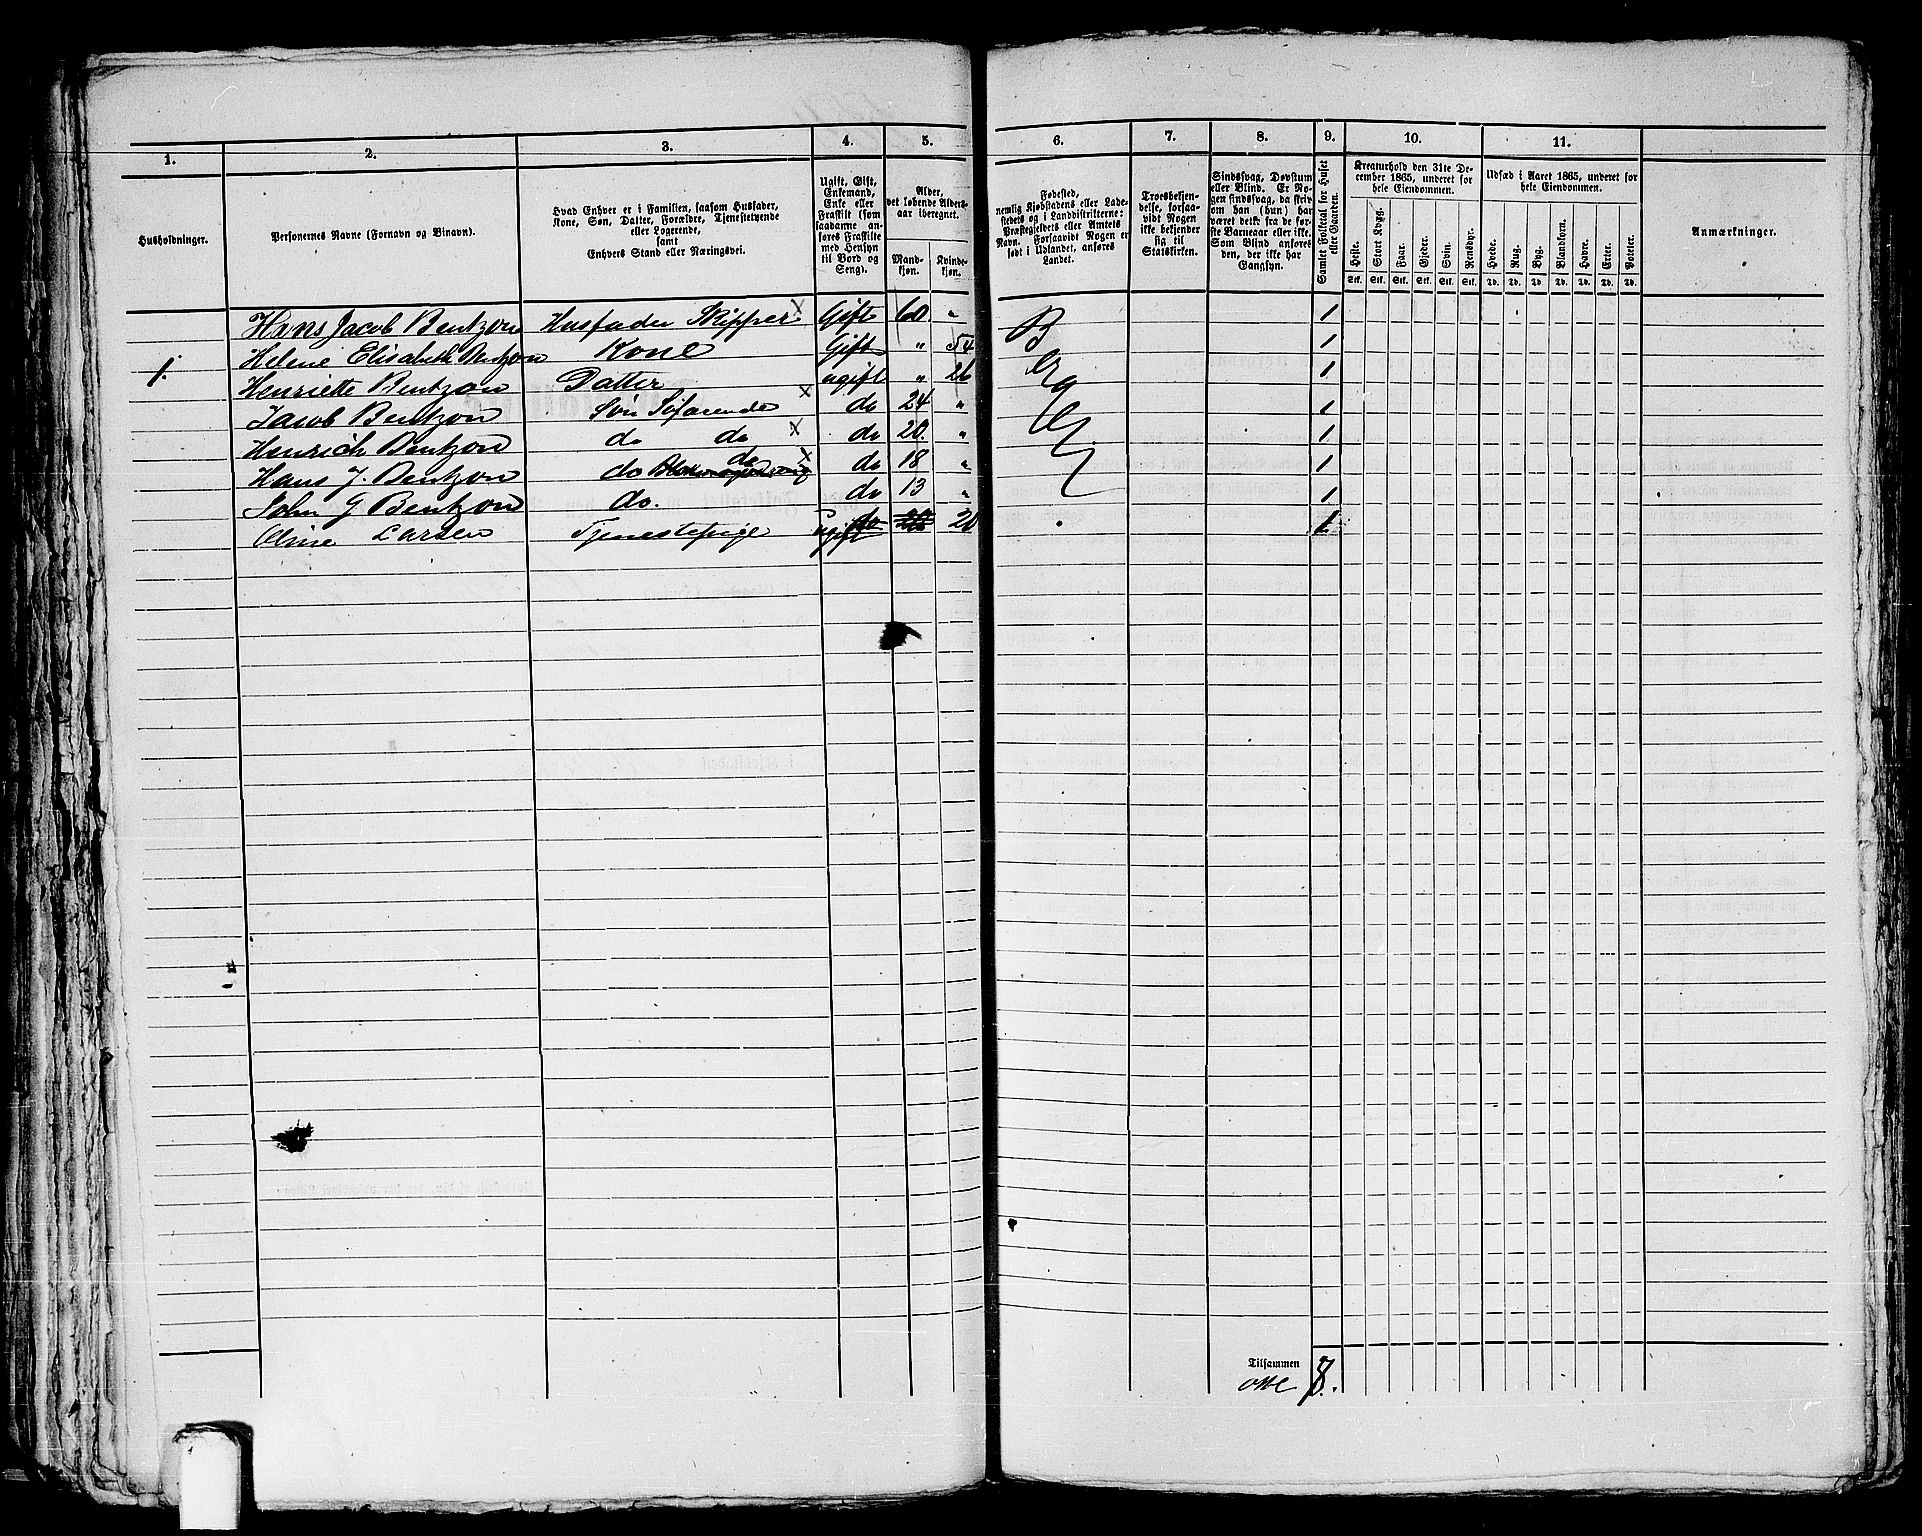 1.
2.
3.
4.
5.
6.
7.
8.
9.
10.
11.
Husholdninger.
Personernes Navne (Fornavn og Binavn).
Hvad Enhver er i Familien, saasom Husfader,
Kone, Søn, Datter, Forældre, Tjenestetyende
eller Logerende,
samt
Enhvers Stand eller Næringsvei.
Ugift, Gift,
Enkemand,
Enke eller
Fraskilt (som
saadanne an-
føres Fraskilte
med Hensyn
til Bord og
Seng).
Alder,
det løbende Alders-
aar iberegnet.
Mand-
kjøn.
Kvinde-
kjøn.
Fødested,
nemlig Kjøbstadens eller Lade-
stedets og i Landdistrikterne:
Præstegjeldets eller Amtets
Navn. Forsaavidt Nogen er
født i Udlandet, anføres
Landet.
Troesbekjen-
delse, forsaa-
vidt Nogen
ikke bekjender
sig til
Statskirken.
Sindssvag, Døvstum
eller Blind. Er No-
gen sindssvag, da skriv
om han (hun) har
været dette fra de før-
ste Barneaar eller ikke.
Som Blind anføres
den, der ikke har
Gangsyn.
Samlet Folketal for Huset
eller Gaarden.
Kreaturhold den 31te De-
cember 1865, underet for
hele Eiendommen.
Heste. Stort Kvæg. Faar. Gjeder. Svin. Rensdyr.
Stk. Stk. Stk. Stk. Stk. Stk.
Udsæd i Aaret 1865, underet for
hele Eiendommen.
Hvede. Rug. Byg. Blandkorn. Havre. Erter. Poteter.
Td. Td. Td. Td. Td. Td. Td.
Anmærkninger.
Hans Jacob Bentzon Husfader Skipper x Gift 60. „ B 1
1. Helene Elisabeth Bentzon Kone Gift „ 54 1
Henriette Bentzon Datter ugift „ 26 1
Jacob Bentzon Søn Søfarende x do 24 „ 1
Henrich Bentzon do do x do 20. „ 1
Hans J. Bentzon do do x do 18 „ 1
John G Bentzon do. do 13 „ 1
Oline Larsen Tjenestepige ugift 20 1
Tilsammen
otte 8.